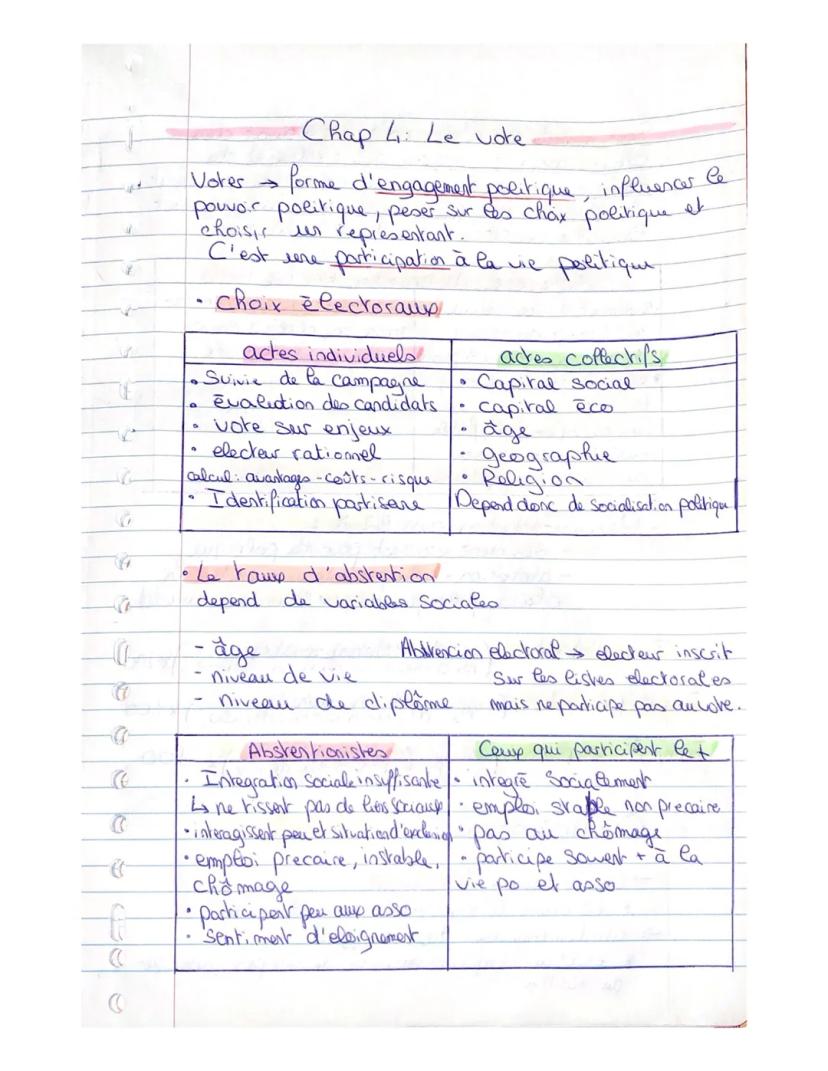 Chap 4: Le vote
Voter → forme d'engagement politique, influencer le
pouvoir politique, peser sur les choix politique et
choisir un representant.
C'est une participation à la vie politique
• choix électoraux
actes individuels
• Suivie de la campagne
• évaluation des candidats
• vote sur enjeux
• electeur rationnel
calcul: avantages - coûts - risque
• Identification partisane
actes collectifs
• Capital social
• capital éco
• âge
• geographie
• Religion
Depend donc de socialisation politique
• Le taux d'abstention
depend de variables sociales
- âge
- niveau de vie
- niveau de diplôme
Abstencion electoral → electeur inscrit
sur les listes electorales
mais ne participe pas au vote.
Abstentionistes
• Integration sociale insuffisante
↳ ne tissent pas de liens sociaux
• interagissent peu et situation d'exclusion
• emploi precaire, instable,
chômage
• participent peu aux asso
• Sentiment d'eloignement
Ceux qui participent le +
• integré Socialement
• emploi stable non precaire
• pas au chômage
• participe souvent + à la
vie po et asso